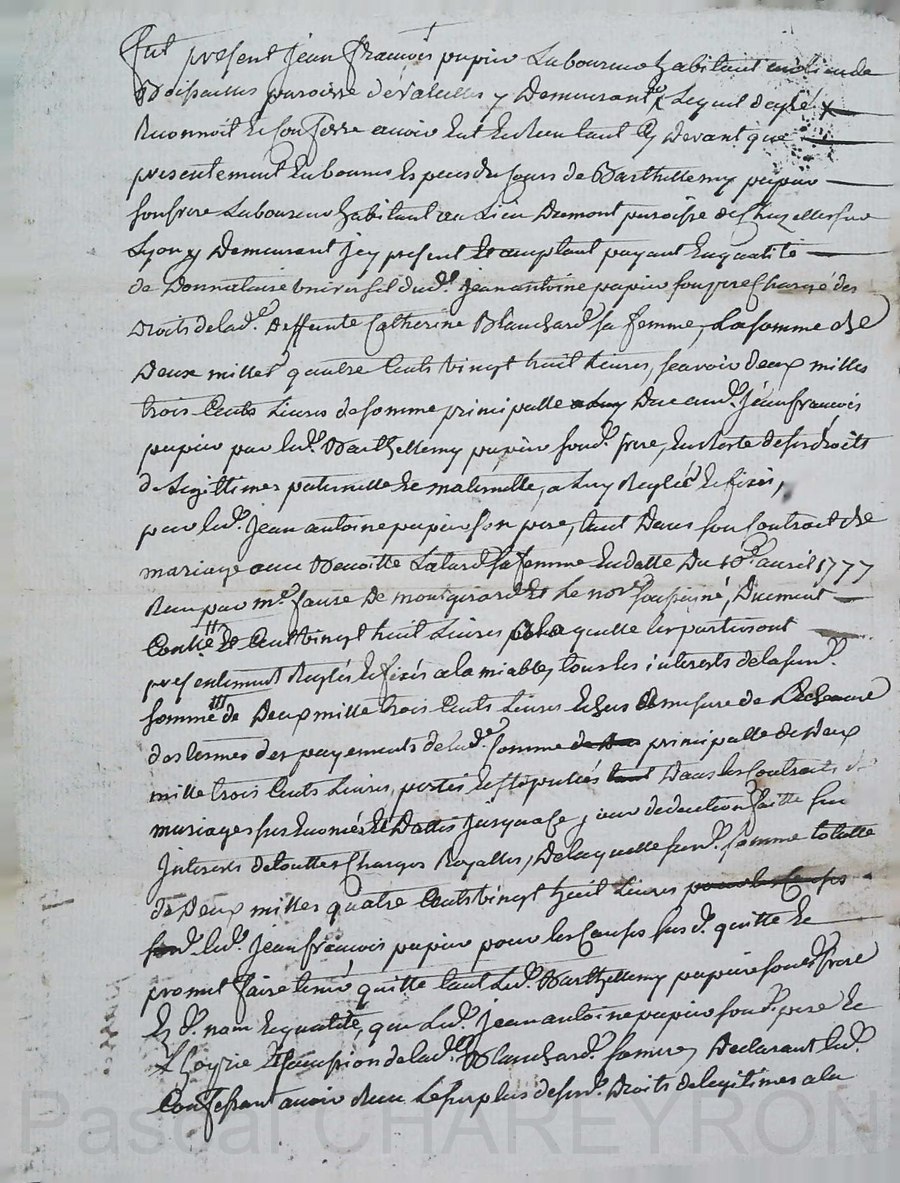 fut present jean francois papier Laboureur habitant
paroisse de Valeilles y Demeurant Lequel de gré
Reconnoit Et Confesse avoir Eut Et Receu tant Cy Devant que
presentement En bonnes Especes du Cours de Barthellemy papier
son frere Laboureur habitant au Lieu Dumont paroisse de Chazelles sur
Lyon y Demeurant jcy present Et acceptant payant En qualité
de Donnataire universel dud. jean antoine papier son pere Chargé des
Droits de lad.e deffunte Catherine Blanchard sa femme, La somme de
Deux milles quattre Cents vingt huit Livres, scavoir deux milles
trois Cents Livres de somme principalle Due aud. jean francois
papier par led. Barthellemy papier son d. frere, En reste de ses droits
de Legittimes paternelle Et maternelle, a Luy Reglés Et fixés,
par led. jean antoine papier son pere, tant Dans son Contrait de
mariage avec Benoitte sa femme En datte Du avril 1777
Receu par me. faure De montgirard Et Le nore. soussigné, Duement
Contrôlé Et Cent vingt huit Livres a la quelle les parties ont
presentement Reglés Et fixés a la miable, tous les interests de la susd.
somme de Deux mille trois Cents Livres Echus a mesure de
des termes des payements de lad.e somme principalle de Deux
mille trois Cents Livres, portés Et stipulés Dans les Contraits de
mariages sus Enoncés Et Dattés jusqua ce jour deduction faitte sur
jnterests de touttes Charges Royalles, De laquelle susd. somme totalle
de Deux milles quatre Cents vingt huit Livres pour les Causes
led. jean francois papier pour les Causes susd. quitte Et
promet faire tenir quitte tant Led. Barthellemy papier son d. frere
Es d. nom Et qualité, que Led. jean antoine papier son d. pere Et
L hoyrie Et succession de lad. Blanchard sa mere, Declarant led.
Confessant avoir Receu Le surplus de sesd. Droits de legitimes a la
Pascal CHAREYRON